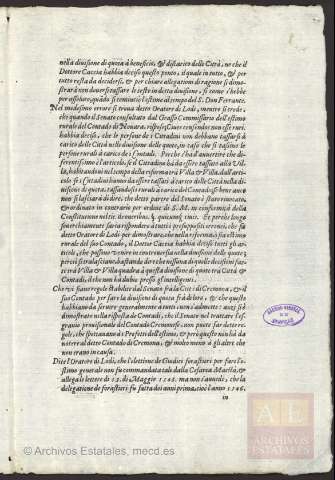 nella diuisione di quota à beneficio, & disfauico delle Città, ne che il
Dottore Caccia habbia deciso questo ponto, il quale in tutto, & per
tutto resta da decidersi, & per chiare allegationi di ragione si dimo-
strarà non douer essaltare le teste in detta diuisione, si come s'hebbe
per assoluto, quādo si terminò l'estimo al tempo del S. Don Ferrante.
Nel medesimo errore si troua detto Oratore di Lodi, mentre si crede,
che quando il Senato consultato dal Grasso Commissario dell'estimo
rurale del Contado di Nouara, rispose, Ciues censendos non esse rurì,
habbia deciso, che le persone de i Cittadini non debbano essaltarsi à
carico delle Città nella diuisione delle quote, in case che si tassino le
persone rurali à carico de i Contadi. Perche s'hà d'auuertire che dif-
ferentissimo è l'articolo, se il Cittadino hà da essere tassato alla Vil-
la, habitando ini nel tempo della riforma trà Villa & Villa, dall'arti-
colo se i Cittadini hanno da essere tassati à carico delle Città nella di-
uisione di quote, tassandosi i rurali à carico de i Contadi
non si lasciarà di dire, che detto parere del Senato è stato riuocato,
& ordinato in contrario per ordine di S. M. in conformità della
Constitutione nel tit. de muneribus, §. quicunq; ciuis. Et perche lungo
sarebbe
detto Oratore de Lodi per dimostrare, che nella riforma di sò estimo
rurale del suo Contado, il Dottor Caccia habbia deciso tutti gli ar-
ticoli, che possino venire in controuersia nella diuisione delle quote,
perciò si tralasciano, bastando dire che nessuna di quelle decisioni fat-
te trà Villa & Villa quadra à questa diuisione di quote trà Città &
Contadi, il che non hà dubio presso gl'intelligenti.
Che i trè siano regole stabilite dal Senato frà la Città di Cremona, & il
suo Contado per fare la diuisione di questa frà di loro, & che queste
habbiano da seruire generalmente à tutti come d'adietro: anzi si è
dimostrato nella risposta de Contadi, che il Senato nel trattare l'es-
gruuio pretensionale del Contado Cremonese, non puote far dette re-
gole, che spettauano à i Prefetti dell'estimo, & però queste non hà da
noterà al detto Contado di Cremona, & molto meno à gli altri che
non erano in causa.
Dice l'Oratore di Lodi, che l'elettione de Giudici forastieri per fare l'e-
stimo generale non fu commandata tale dalla Cesarea Maestà, &
allega le lettere di 15. di Maggio 1548. ma non s'auuede, che la
delegatione de forastieri fu fatta doi anni prima, cioè l'anno 1546.
in
© Archivos Estatales, mecd.es
AE
ARCHIVOS
ESTATALES